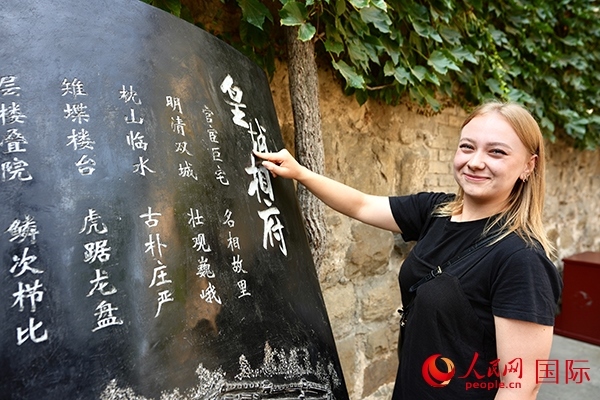 皇城相府
官宦巨宅 名相故里
明清双城 壮观巍峨
枕山临水 古朴庄严
雉堞楼台 虎踞龙盘
层楼叠院 鳞次栉比
人民网 国际
people.cn